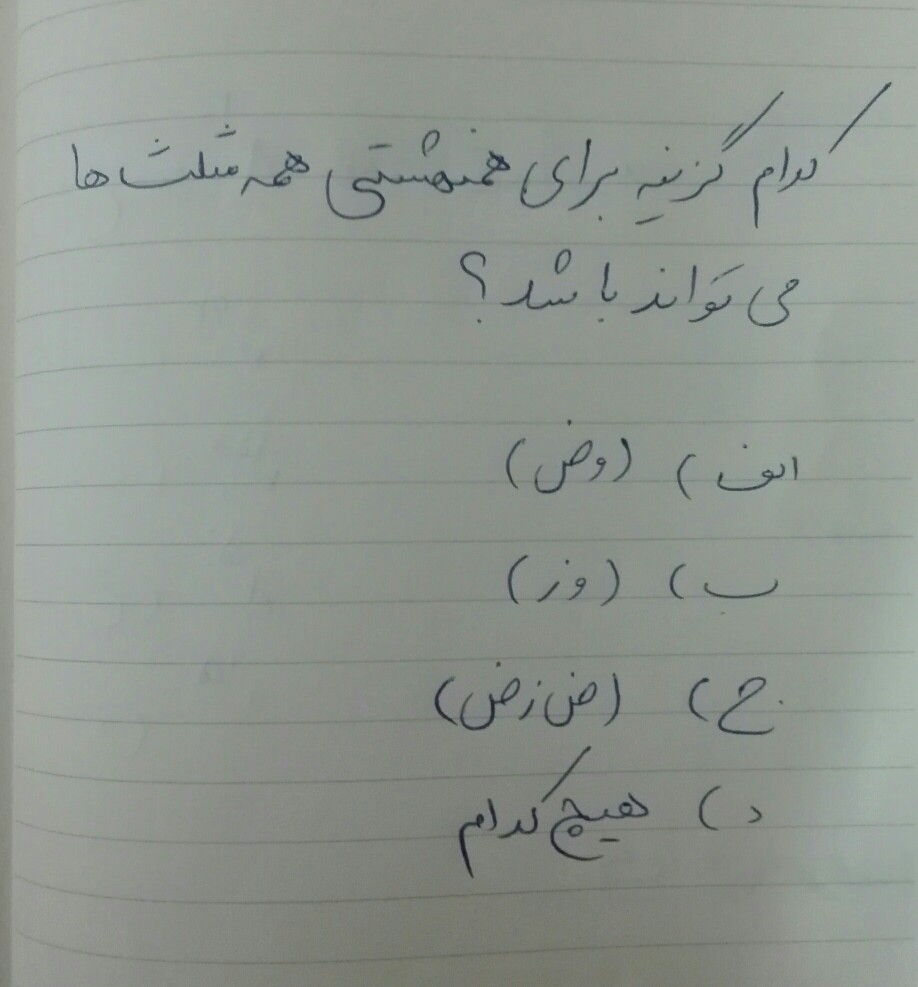 کدام گزینه برای همنهشتی همه مثلث ها
می تواند باشد؟
الف) (وض)
ب) (وز)
ج) (ض ز ض)
د) هیچ کدام